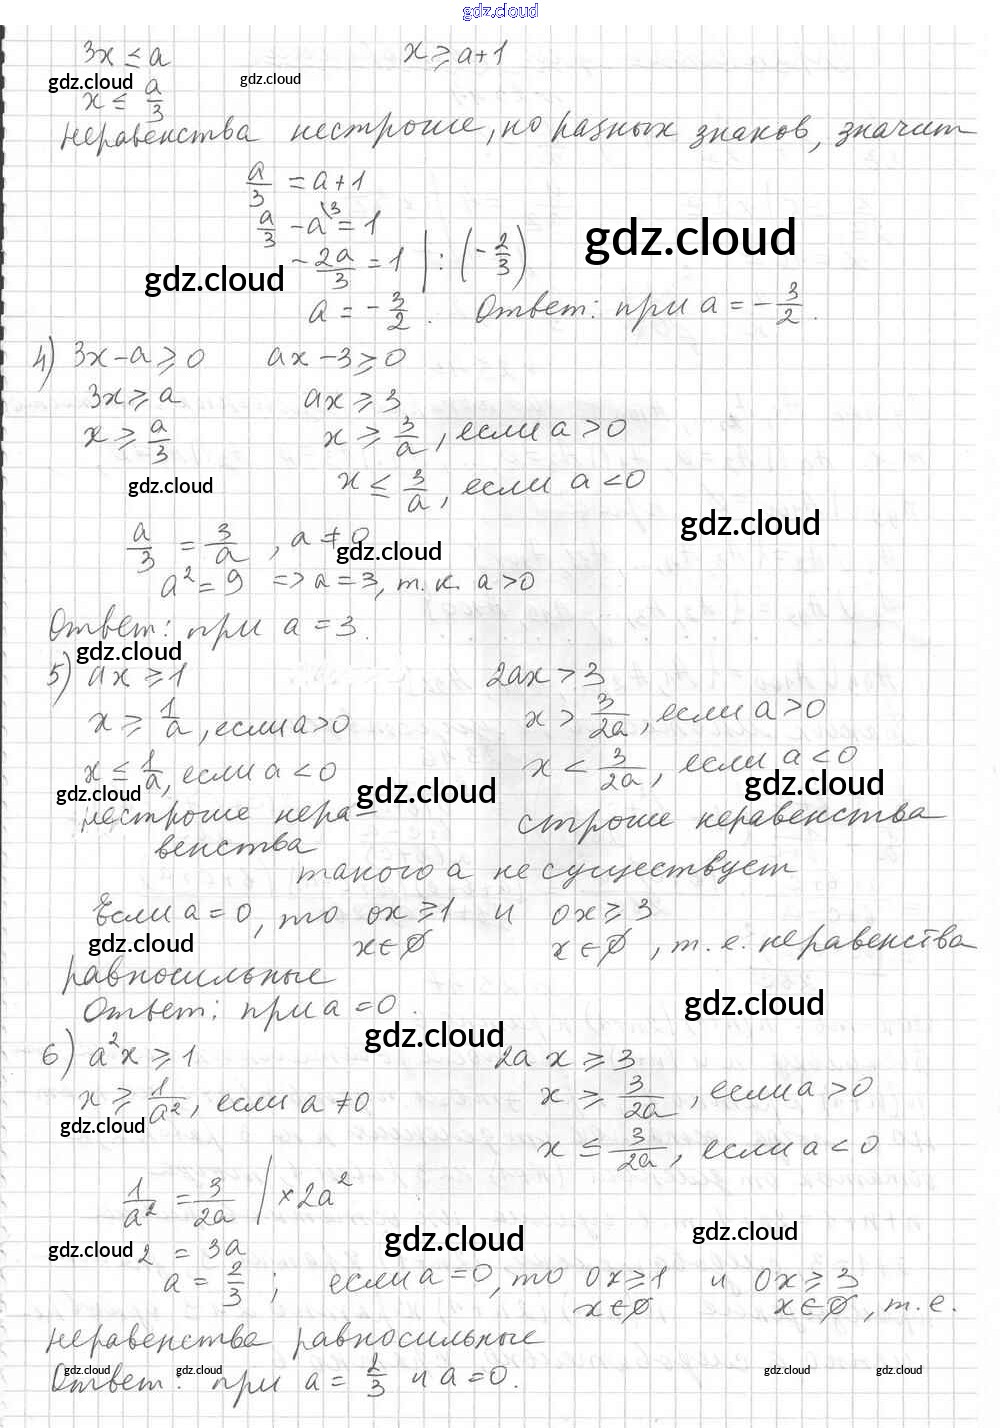 gdz.cloud
3x ≤ a x ≥ a+1
gdz.cloud gdz.cloud
x ≤ a/3
неравенства нестрогие, но разных знаков, значит
a/3 = a+1
a/3 - a\3 = 1 gdz.cloud
gdz.cloud - 2a/3 = 1 | : (- 2/3)
a = - 3/2 . Ответ: при a = - 3/2 .
4) 3x - a ≥ 0 ax - 3 ≥ 0
3x ≥ a ax ≥ 3
x ≥ a/3 x ≥ 3/a , если a > 0
gdz.cloud x ≤ 3/a , если a < 0
gdz.cloud
a/3 = 3/a , a ≠ 0 gdz.cloud
a² = 9 => a = 3, т.к. a > 0
Ответ: при a = 3.
gdz.cloud
5) ax ≥ 1 2ax > 3
x ≥ 1/a , если a > 0 x > 3/2a , если a > 0
x ≤ 1/a , если a < 0 x < 3/2a , если a < 0
gdz.cloud gdz.cloud gdz.cloud
нестрогие нера- строгие неравенства
венства
такого a не существует
Если a = 0, то 0x ≥ 1 и 0x ≥ 3
gdz.cloud x ∈ ∅ x ∈ ∅ , т.е. неравенства
равносильные
Ответ: при a = 0. gdz.cloud
gdz.cloud
6) a²x ≥ 1 2ax ≥ 3
x ≥ 1/a² , если a ≠ 0 x ≥ 3/2a , если a > 0
gdz.cloud x ≤ 3/2a , если a < 0
1/a² = 3/2a | × 2a²
gdz.cloud gdz.cloud gdz.cloud
2 = 3a
a = 2/3 ; если a = 0, то 0x ≥ 1 и 0x ≥ 3
x ∈ ∅ x ∈ ∅ , т.е.
неравенства равносильные
gdz.cloud gdz.cloud gdz.cloud gdz.cloud
Ответ: при a = 2/3 и a = 0.